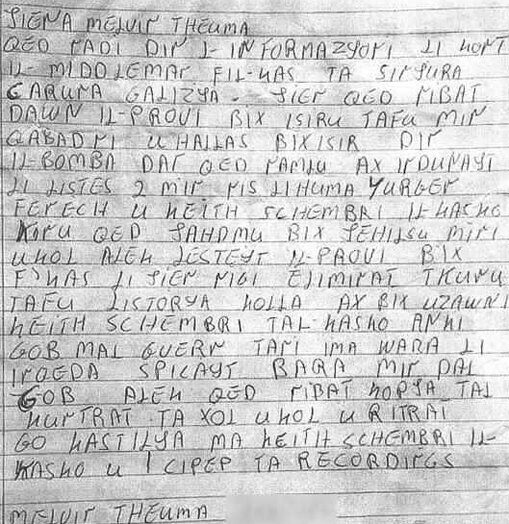 JIENA MELVIN THEUMA
QED NADI DIN L-INFORMAZYONI LI KONT
IL-MIDDLEMAN FIL-KAS TA SINJURA
CARUNA GALIZYA. JIEN QED NIBAT
DAWN IL-PROVI BIX ISIRU TAFU MIN
QABADNI U HALLAS BIXISIR DIN
IL-BOMBA DAN QED NAMLU AX INDUNAYT
LI LISTES 2 MIN NIS LIHUMA YURGEN
FENECH U KEITH SCHEMBRI IL-KASKO
KINU QED JAHDMU BIX JEHILSU MINI
UKOL ALEK LESTEYT IL-PROVI BIX
F'KAS LI JIEN NIGI ELIMINAT TKUNU
TAFU LISTORYA KOLLA AX BIX UZAWNI
KEITH SCHEMBRI TAL-KASKO ANKI
GOB MAL GVERN TANI IMA WARA LI
INQEDA SPICAYT BARA MIN DAL
GOB ALEK QED NIBAT KOPYA TAL
KUNTRAT TA XOL UKOL U RITRAT
GO KASTILYA MA KEITH SCHEMBRI IL-
KASKO U 1 CIPEP TA RECORDINGS
MELVIN THEUMA